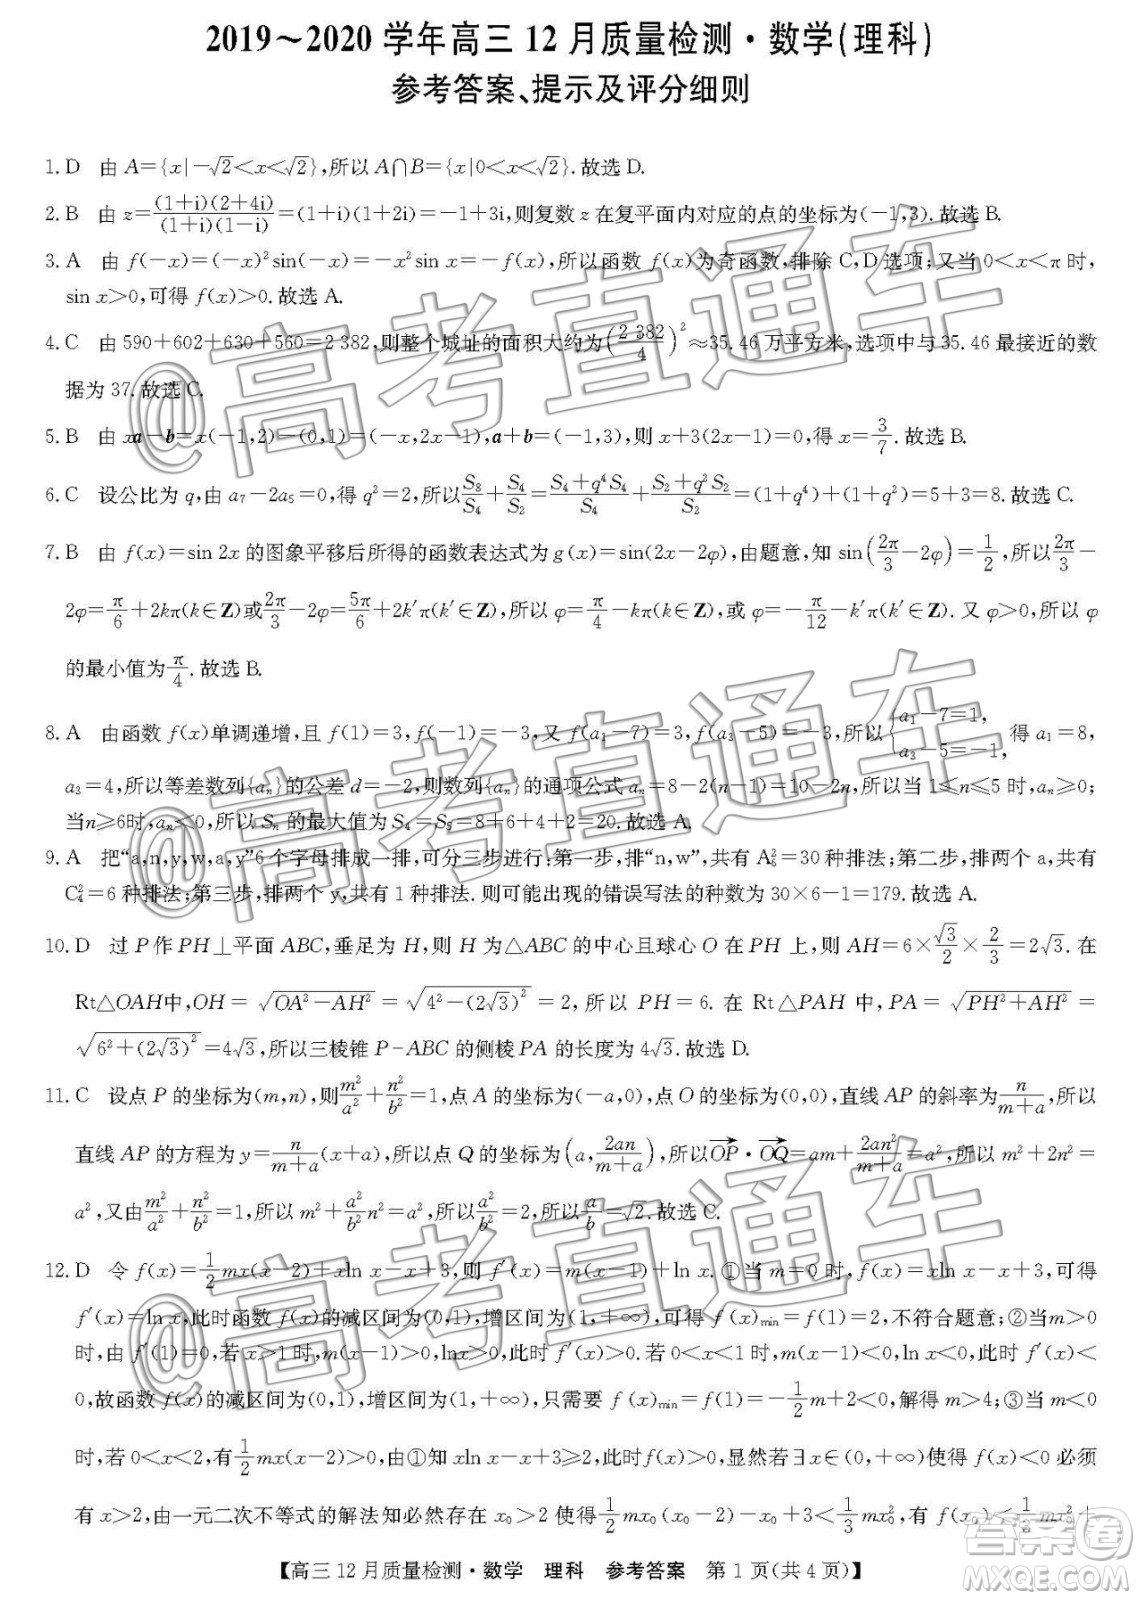 2019～2020 学年高三 12 月质量检测·数学(理科)
参考答案、提示及评分细则
1. D 由 A={x|-√2<x<√2},所以 A∩B={x|0<x<√2}.故选 D.
2. B 由 z=(1+i)(2+4i)/(1+i)(1-i)=(1+i)(1+2i)=-1+3i,则复数 z 在复平面内对应的点的坐标为(-1,3).故选 B.
3. A 由 f(-x)=(-x)²sin(-x)=-x²sin x=-f(x),所以函数 f(x)为奇函数,排除 C,D 选项;又当 0<x<π 时,
sin x>0,可得 f(x)>0.故选 A.
4. C 由 590+602+630+560=2 382,则整个城址的面积大约为(2 382/4)²≈35.46 万平方米,选项中与 35.46 最接近的数
据为 37.故选 C.
5. B 由 xa-b=x(-1,2)-(0,1)=(-x,2x-1),a+b=(-1,3),则 x+3(2x-1)=0,得 x=3/7.故选 B.
6. C 设公比为 q,由 a₇-2a₅=0,得 q²=2,所以 S₈/S₄+S₄/S₂=(S₄+q⁴S₄)/S₄+(S₂+q²S₂)/S₂=(1+q⁴)+(1+q²)=5+3=8.故选 C.
7. B 由 f(x)=sin 2x 的图象平移后所得的函数表达式为 g(x)=sin(2x-2φ),由题意,知 sin(2π/3-2φ)=1/2,所以 2π/3-
2φ=π/6+2kπ(k∈Z)或 2π/3-2φ=5π/6+2k′π(k′∈Z),所以 φ=π/4-kπ(k∈Z),或 φ=-π/12-k′π(k′∈Z).又 φ>0,所以 φ
的最小值为 π/4.故选 B.
8. A 由函数 f(x)单调递增,且 f(1)=3,f(-1)=-3,又 f(a₁-7)=3,f(a₃-5)=-3,所以{a₁-7=1, a₃-5=-1, 得 a₁=8,
a₃=4,所以等差数列{aₙ}的公差 d=-2,则数列{aₙ}的通项公式 aₙ=8-2(n-1)=10-2n,所以当 1≤n≤5 时,aₙ≥0;
当n≥6时,aₙ<0,所以 Sₙ 的最大值为 S₄=S₅=8+6+4+2=20.故选 A.
9. A 把“a,n,y,w,a,y”6 个字母排成一排,可分三步进行:第一步,排“n,w”,共有 A₆²=30 种排法;第二步,排两个 a,共有
C₄²=6 种排法;第三步,排两个 y,共有 1 种排法.则可能出现的错误写法的种数为 30×6-1=179.故选 A.
10. D 过 P 作 PH⊥平面 ABC,垂足为 H,则 H 为△ABC 的中心且球心 O 在 PH 上,则 AH=6×√3/2×2/3=2√3.在
Rt△OAH中,OH=√(OA²-AH²)=√(4²-(2√3)²)=2,所以 PH=6.在 Rt△PAH 中,PA=√(PH²+AH²)=
√(6²+(2√3)²)=4√3,所以三棱锥 P-ABC 的侧棱 PA 的长度为 4√3.故选 D.
11. C 设点 P 的坐标为(m,n),则 m²/a²+n²/b²=1,点 A 的坐标为(-a,0),点 O 的坐标为(0,0),直线 AP 的斜率为 n/(m+a),所以
直线 AP 的方程为 y=n/(m+a)(x+a),所以点 Q 的坐标为(a,2an/(m+a)),所以 OP·OQ=am+2an²/(m+a)=a²,所以 m²+2n²=
a²,又由 m²/a²+n²/b²=1,所以 m²+a²/b² n²=a²,所以 a²/b²=2,所以 a/b=√2.故选 C.
12. D 令 f(x)=1/2 mx(x-2)+xln x-x+3,则 f′(x)=m(x-1)+ln x.①当 m=0 时,f(x)=xln x-x+3,可得
f′(x)=ln x,此时函数 f(x)的减区间为(0,1),增区间为(1,+∞),可得 f(x)min=f(1)=2,不符合题意;②当m>0
时,由 f′(1)=0,若 x>1 时,m(x-1)>0,ln x>0,可得 f′(x)>0.若 0<x<1 时,m(x-1)<0,ln x<0,可得 f′(x)<
0,故函数 f(x)的减区间为(0,1),增区间为(1,+∞),只需要 f(x)min=f(1)=-1/2 m+2<0,解得 m>4;③当 m<0
时,若 0<x<2,有 1/2 mx(x-2)>0,由①知 xln x-x+3>0,此时 f(x)>0,显然若∃x∈(0,+∞)使得 f(x)<0 必须
有 x>2,由一元二次不等式的解法知必然存在 x₀>2 使得 1/2 mx₀(x₀-2)-x₀+3<1/3 mx₀²,有 f(x₀)<1/3 mx₀²+
【高三 12 月质量检测·数学 理科 参考答案 第 1 页(共 4 页)】
@高考直通车
@高考直通车
@高考直通车
答案圈